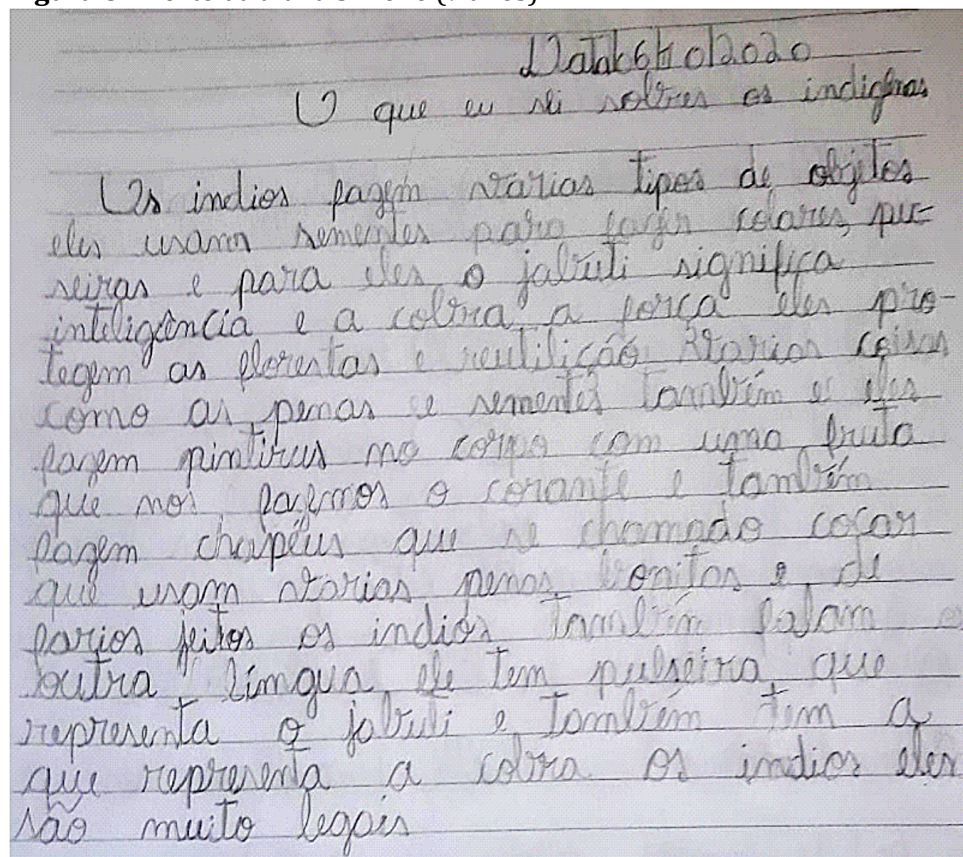 Data 6/10/2020
O que eu sei sobres os indigenas
Os indios fazem varias tipos de objetos
eles usam sementes para fazer colares, pu-
seiras e para eles o jabuti significa
inteligência e a cobra a força eles pro-
tegem as florestas e reutilição varias coisas
como as penas e sementes também e eles
fazem pinturas no corpo com uma fruta
que nos fazemos o corante e também
fazem chapéus que se chamado cocar
que usam varias penas bonitas e de
varios jeitos os indios também falam
outra língua, ele tem pulseira que
representa o jabuti e também tem a
que representa a cobra os indios eles
são muito legais